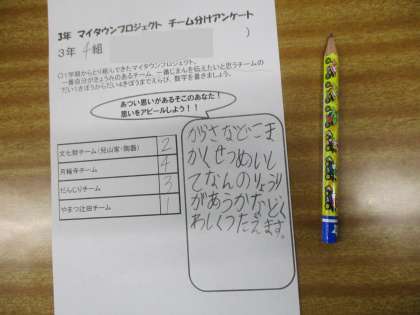 3年 マイタウンプロジェクト チーム分けアンケート
3年 4組
)
○1学期からとり組んできたマイタウンプロジェクト。
一番自分がきょうみのあるチーム、一番じまんを伝えたいと思うチームの
だい1きぼうからだい4きぼうまでえらび、数字を書きましょう。
あつい思いがあるそこのあなた!
思いをアピールしよう!!
文七群チーム(兒山家・陶器) 2
月輪寺チーム 4
だんじりチーム 3
やまつ辻田チーム 1
からさなどこま
かくせつめいし
てなんのりょうり
があうかなどく
わしくつたえます。